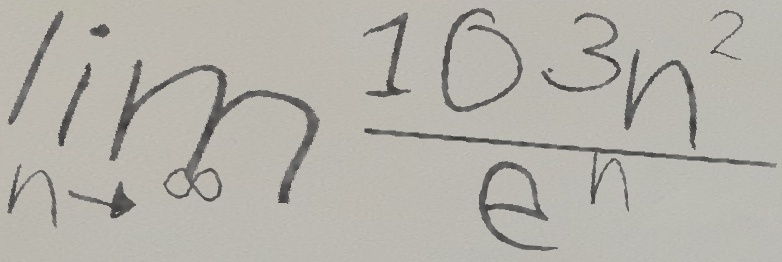 lim n→∞ 103n² / eⁿ